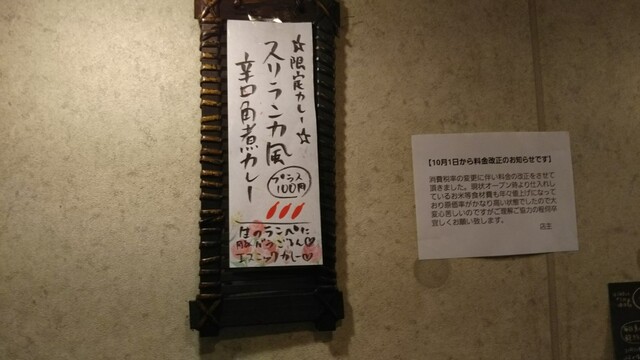 ☆限定カレー☆
スリランカ風
辛口角煮カレー
プラス
100円
エスニックカレー♡
【10月1日から料金改正のお知らせです】
消費税率の変更に伴い料金の改正をさせて
頂きました。現状オープン時より仕入れし
ているお米等食材費も年々値上げになって
おり原価率がかなり高い状態でしたので大
変心苦しいのですがご理解ご協力の程何卒
宜しくお願い致します。
店主